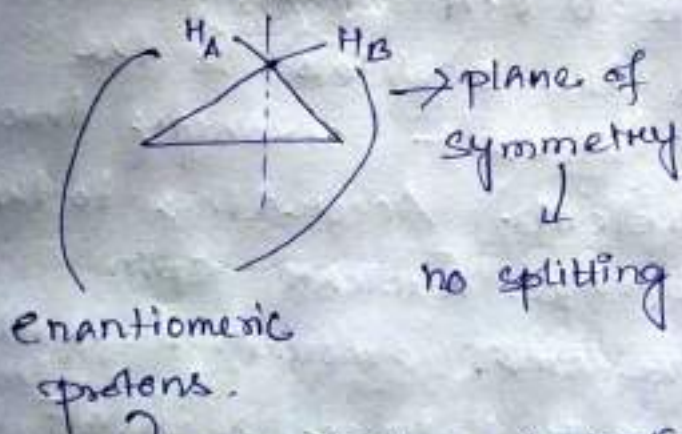 H_A H_B
→ plane of
symmetry
↓
no splitting
enantiomeric
protons.